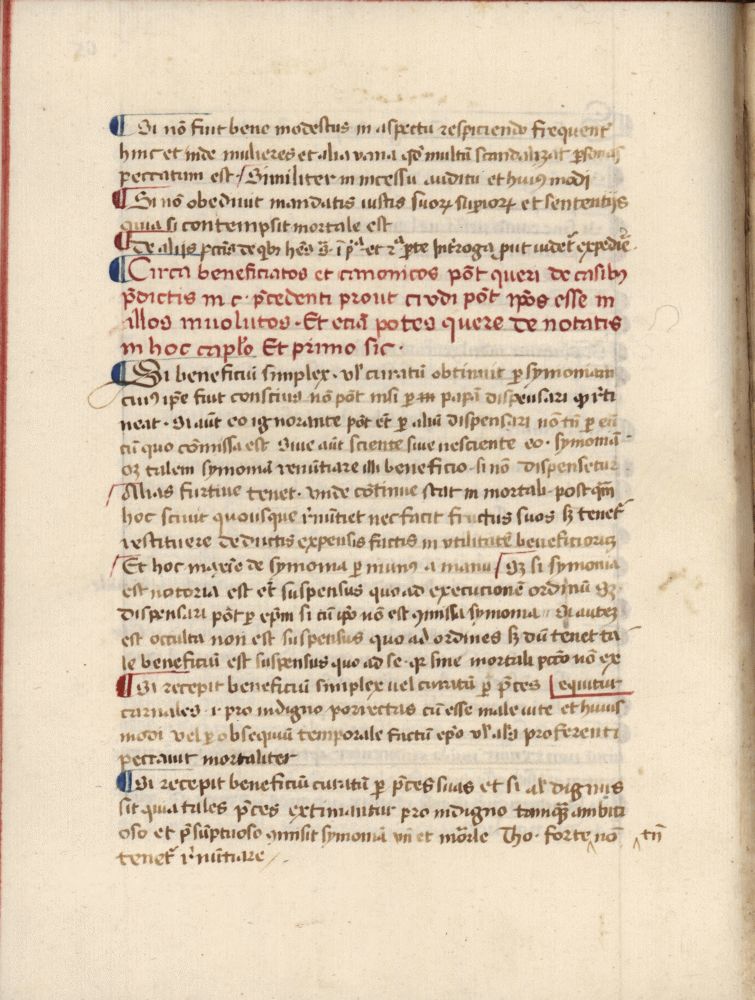 Si nō fuit bene modestus in aspectu respiciendo frequent᷒
hinc et inde mulieres et alia vana qd̄ multū scandalizat p̱sonas
peccatum est / Similiter in incessu auditu et huiꝰ modi
Si nō obediuit mandatis iustis suoꝝ supioꝝ et sententijs
quia si contempsit mortale est
De alijs pccīs de qbꝫ hēs s. i pᵃ et 2ᵃ pte Int̄roga put videt᷒ expedire
Circa beneficiatos et canonicos pn̄t queri de casibꝫ
p̄dictis in c. p̄cedenti prout c̄r̄ cudi pōt ip̄os esse in
illos inuolutos. Et eciā potes quere de notatis
in hoc caplo Et primo sic.
Si beneficiū simplex. vl̓ curatū obtinuit p̱ symoniam
cuiꝰ ip̄e fuit conscius nō pōt nisi p̱ papā dispensari ꝙ r̄ti
neat. Si aūt eo ignorante pōt et̄ p̱ aliū dispensari nō tn̄ p̱ eū
cū quo cōmissa est Siue aūt sciente siue nesciente eo. symoniā
oꝫ talem symoniā renūtiare illi beneficio. si nō dispensetur.
Alias furtiue tenet. vnde cōtinue stat in mortali. postqᷓm
hoc sciuit quousque r̄nūtiet nec facit fructus suos sꝫ tenet᷒
restituere deductis expensis factis in vtilitatē beneficiorū
Et hoc maxīe de symonia p̱ munꝰ a manu / Qꝫ si symonia
est notoria est et̄ suspensus quo ad executionē ordinū sꝫ
dispensari pōt p̱ ep̄m si cū ip̄o nō est ꝯmissa symonia Si autez
est occulta non est suspensus quo ad ordines sꝫ dū tenet ta
le beneficiū est suspensus quo ad se. qr sine mortali pcc̄o nō ex
Si recepit beneficiū simplex uel curatū p̱ p̄ces equitur
carnales. i. pro indigno porrectas cū esse male uite et huiꝰ
modi vel p̱ obsequiū temporale factū ep̄o vl̓ alij proferenti
peccauit mortaliter
Si recepit beneficiū curatū p̱ p̄ces suas et si al̓ dignus
sit quia tales p̄ces extimantur pro indigno tamqᷓ ambiti
oso et p̄sūptuoso ꝯmisit symoniā vn̄ et mōrle Tho. forte nō tn̄
tenet᷒ r̄nūtiare.